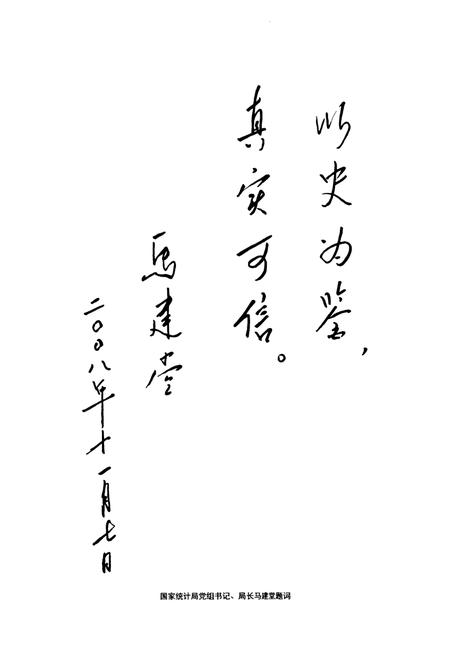 以史为鉴，
真实可信。
马建堂
二〇〇八年十一月七日
国家统计局党组书记、局长马建堂题词